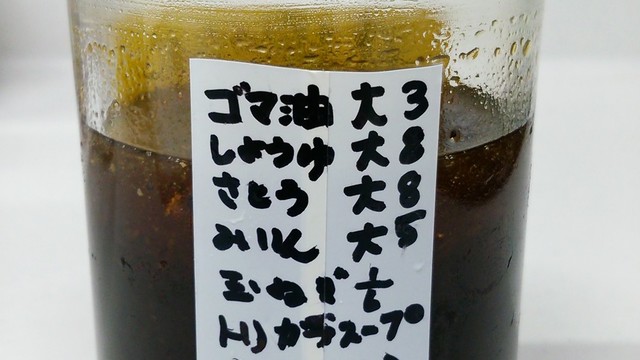 ゴマ油 大 3
しょうゆ 大 8
さとう 大 8
みりん 大 5
玉ねぎ
トリガラスープ